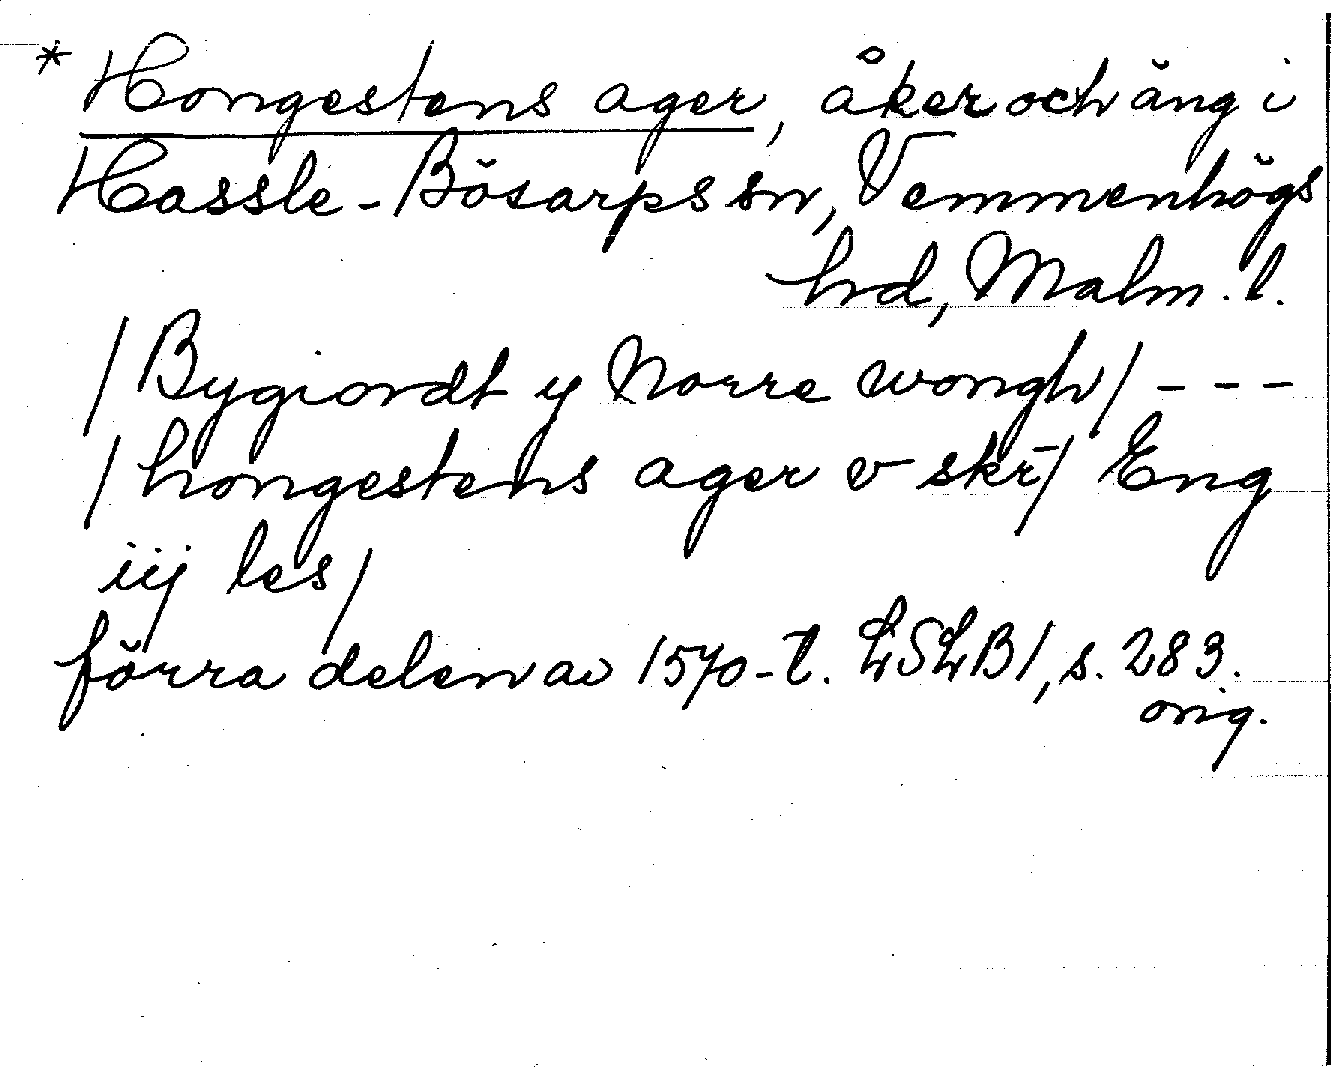 * Hongestens ager, åker och äng i
Hassle-Bösarps sn, Vemmenhögs
hd, Malm. l.
/Bygiordt y Norre wongh/ - - -
/hongestens ager v skr̄/ Eng
iij les/
förra delen av 1570-t. LSLB 1, s. 283.
orig.